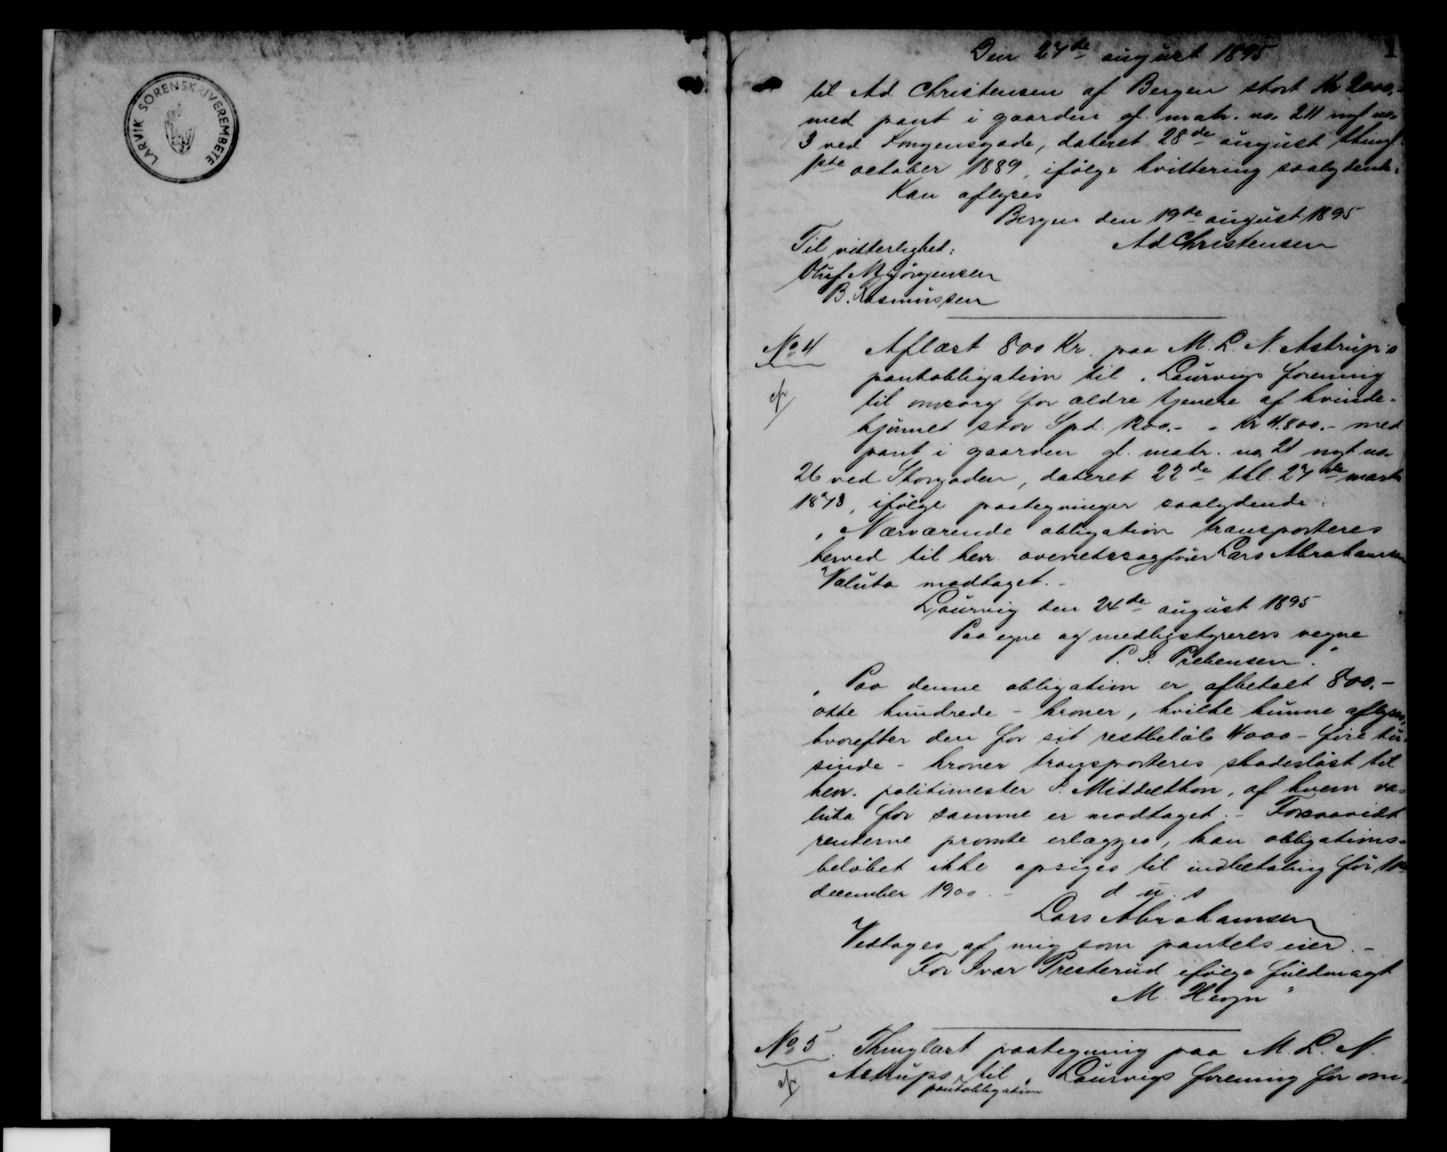 LARVIK SORENSKRIVEREMBETE
1
Den 27de august 1895
til Ad Christensen af Bergen stort Kr 2000,-
med pant i gaarden gl. matr. no. 211 nyt no.
3 ved Kongensgade, dateret 28de august thingl.
1ste october 1889, ifølge kvittering saalydende:
Kan aflyses
Bergen den 19de august 1895
Til vitterlighed: Ad Christensen
Oluf M Jörgensen
B. Rasmussen
No 4 Aflæst 800 Kr. paa M. L. N. Astrup's
pantobligation til "Laurvigs forening
til omsorg for ældre tjenere af kvinde-
kjønnet stor Spd. 1200.- = Kr 4.800.- med
pant i gaarden gl. matr. no 21 nyt no.
26 ved Storgaden, dateret 22de thl. 27de marts
1873, ifølge paategninger saalydende:
"Nærværende obligation transporteres
herved til herr overretssagfører Lars Abrahamsen
Valuta modtaget.-
Laurvig den 24de august 1895
Paa egne og medbestyrerers vegne
P. I. Prebensen."
"Paa denne obligation er afbetalt 800.-
otte hundrede - kroner, hvilke kunne aflyses,
hvorefter den for sit restbeløb 4000 - fire tu-
sinde - kroner transporteres skadesløst til
herr. politimester I. Middelthon, af hvem va-
luta for samme er modtaget.- Forsaavidt
renterne promte erlægges, kan obligations-
beløbet ikke opsiges til indbetaling før 11te
december 1900.- d. u. s
Lars Abrahamsen
Vedtages af mig som pantets eier.-
For Ivar Presterud ifølge fuldmagt
M. Hegn"
No 5. Thinglæst paategning paa M. L. N.
Astrups pantobligation til "Laurvigs forening for om-